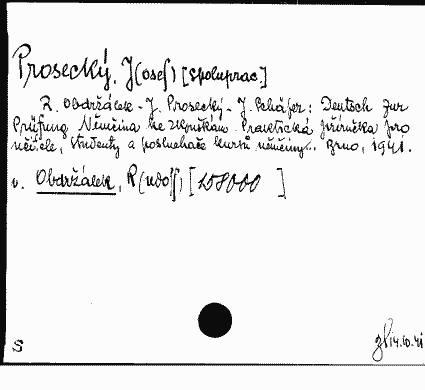 Prosecký, J(osef) [spoluprac.]
R. Obdržálek - J. Prosecký - J. Schäfer: Deutsch zur
Prüfung. Němčina ke zkouškám. Praktická příručka pro
učitele, studenty a posluchače kursů němčiny.. Brno, 1941.
v. Obdržálek, R(udolf) [158000]
S
14.10.41